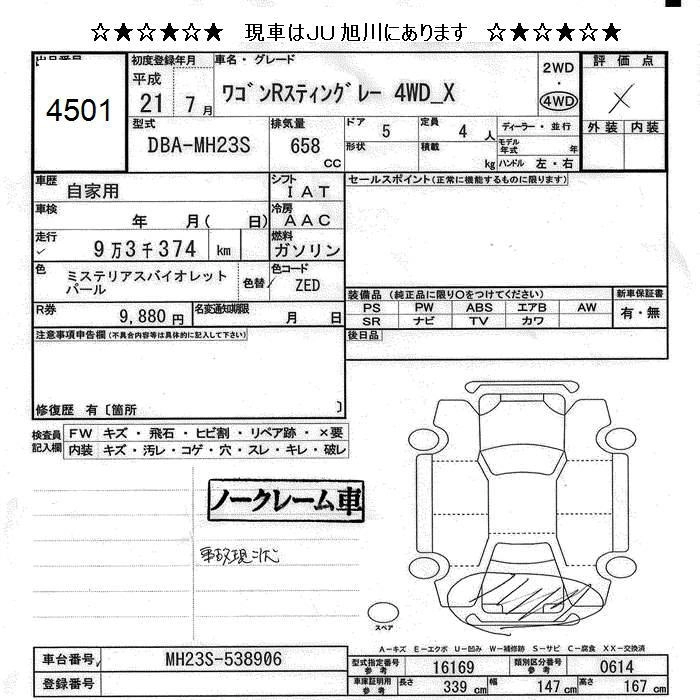 ☆★☆★☆★ 現車はJU旭川にあります ☆★☆★☆★
4501
初度登録年月
平成
21 7 月
車名・グレード
ワゴンRスティングレー 4WD_X
2WD
・
4WD
評価点
×
外装 内装
型式
DBA-MH23S
排気量
658
cc
ドア 5
形状
定員 4 人
積載 kg
ディーラー・並行
モデル年式 年
ハンドル 左・右
車歴 自家用
シフト IAT
車検 年 月( 日)
冷房 AAC
走行 9万3千374 km
燃料 ガソリン
色 ミステリアスバイオレット
パール
色替
色コード ZED
R券 9,880 円
名変通知期限 月 日
セールスポイント(正常に機能するものに限ります)
装備品(純正品に限り○をつけてください)
PS PW ABS エアB AW
SR ナビ TV カワ
新車保証書
有・無
後日品
注意事項申告欄(不具合内容等は具体的に記入して下さい)
修復歴 有〔箇所 〕
検査員
記入欄
FW キズ・飛石・ヒビ割・リペア跡・×要
内装 キズ・汚レ・コゲ・穴・スレ・キレ・破レ
ノークレーム車
事故現状
スペア
A-キズ E-エクボ U-凹み W-補修跡 S-サビ C-腐食 XX-交換済
車台番号 MH23S-538906
登録番号
型式指定番号
参考
16169
類別区分番号
参考
0614
車庫証明用
参考
長さ 339 cm 幅 147 cm 高さ 167 cm